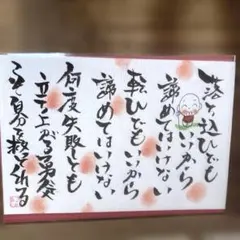 落ち込んでも
いいから
諦めてはいけない
転んでも
いいから
諦めてはいけない
何度失敗しても
立ち上がる勇気
こそ君を救ってくれる